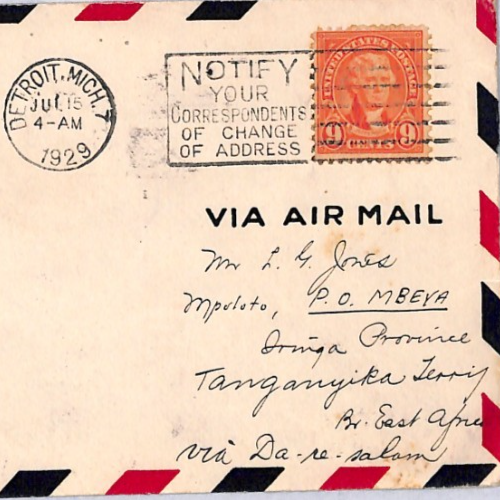 DETROIT, MICH. 7
JUL 15
4-AM
1929
NOTIFY
YOUR
CORRESPONDENTS
OF CHANGE
OF ADDRESS
UNITED STATES POSTAGE
9 9
VIA AIR MAIL
Mr L. G. Jones
Mpoloto, P.O. MBEYA
Iringa Province
Tanganyika Terry
Br. East Africa
via Da-re-salam